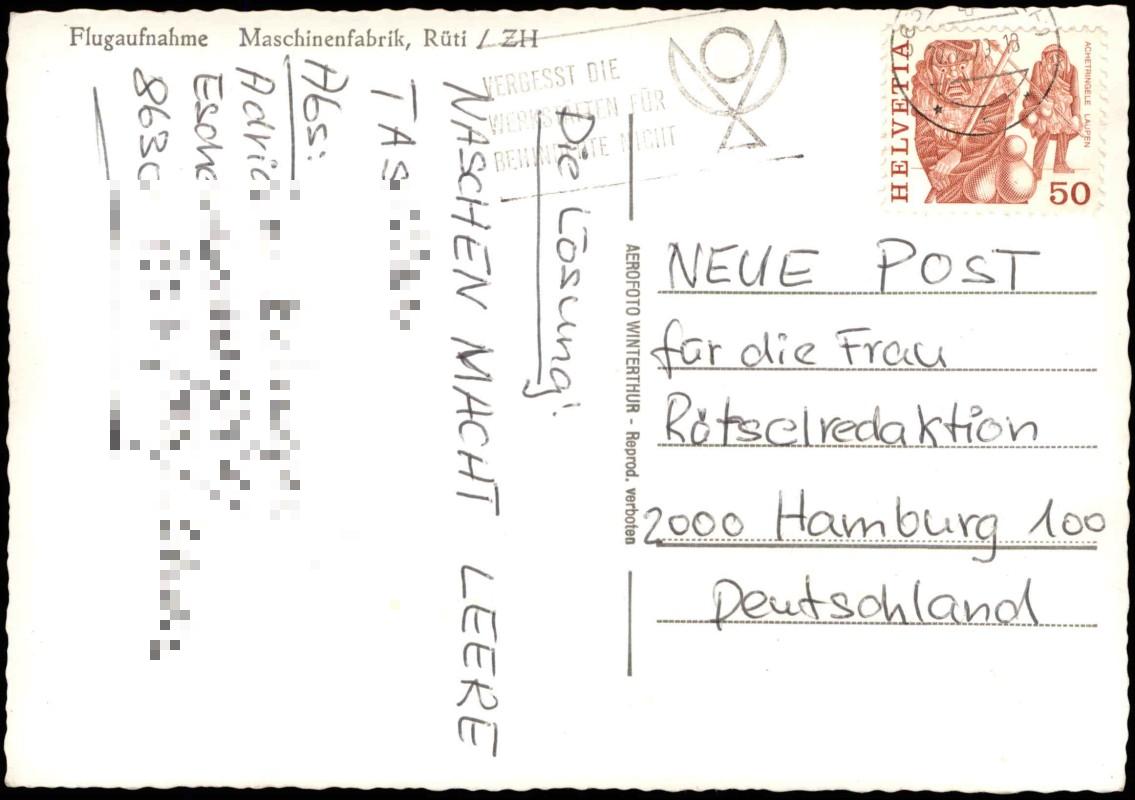 Flugaufnahme Maschinenfabrik, Rüti / ZH
VERGESST DIE
WERKSTÄTTEN FÜR
BEHINDERTE NICHT
HELVETIA
ACHETRINGELE LAUPEN
50
Die Lösung!
NASCHEN MACHT LEERE
TAS
Abs:
863
AEROFOTO WINTERTHUR - Reprod. verboten
NEUE POST
für die Frau
Rätselredaktion
2000 Hamburg 100
Deutschland